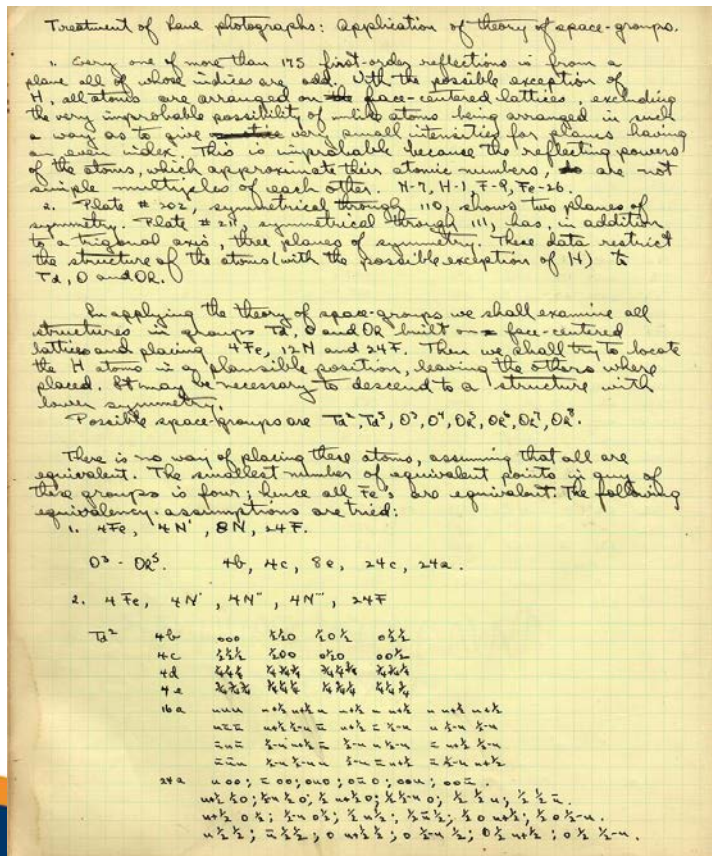 Treatment of Laue photographs: Application of theory of space-groups.
1. Every one of more than 175 first-order reflections is from a
plane all of whose indices are odd. With the possible exception of
H, all atoms are arranged on face-centered lattices, excluding
the very improbable possibility of unlike atoms being arranged in such
a way as to give very small intensities for planes having
an even index. This is improbable because the reflecting powers
of the atoms, which approximate their atomic numbers, are not
simple multiples of each other. N-7, H-1, F-9, Fe-26.
2. Plate # 202, symmetrical through 110, shows two planes of
symmetry. Plate # 211, symmetrical through 111, has, in addition
to a trigonal axis, three planes of symmetry. These data restrict
the structure of the atoms (with the possible exception of H) to
Td, O and Oh.
In applying the theory of space-groups we shall examine all
structures in groups Td, O and Oh built on face-centered
lattices and placing 4Fe, 12N and 24F. Then we shall try to locate
the H atoms in a plausible position, leaving the others where
placed. It may be necessary to descend to a structure with
lower symmetry.
Possible space-groups are Td², Td⁵, O³, O⁴, Oh⁵, Oh⁶, Oh⁷, Oh⁸.
There is no way of placing these atoms, assuming that all are
equivalent. The smallest number of equivalent points in any of
these groups is four; hence all Fe's are equivalent. The following
equivalency assumptions are tried:
1. 4Fe, 4N', 8N, 24F.
O³ - Oh⁵. 4b, 4c, 8e, 24c, 24a.
2. 4Fe, 4N', 4N'', 4N''', 24F
Td² 4b 000 ½½0 ½0½ 0½½
4c ½½½ ½00 0½0 00½
4d ¼¼¼ ¼¾¾ ¾¼¾ ¾¾¼
4e ¾¾¾ ¾¼¼ ¼¾¼ ¼¼¾
16a uuu u+½ u+½ u u+½ u u+½ u u+½ u+½
uūū u+½ ½-u ū u+½ ū ½-u u ½-u ½-u
ūuū ½-u u+½ ū ½-u u ½-u ū u+½ ½-u
ūūu ½-u ½-u u ½-u ū u+½ ū ½-u u+½
24a u00; ū00; 0u0; 0ū0; 00u; 00ū.
u+½ ½ 0; ½-u ½ 0; ½ u+½ 0; ½ ½-u 0; ½ ½ u; ½ ½ ū.
u+½ 0 ½; ½-u 0 ½; ½ u ½; ½ ū ½; ½ 0 u+½; ½ 0 ½-u.
u ½ ½; ū ½ ½; 0 u+½ ½; 0 ½-u ½; 0 ½ u+½; 0 ½ ½-u.